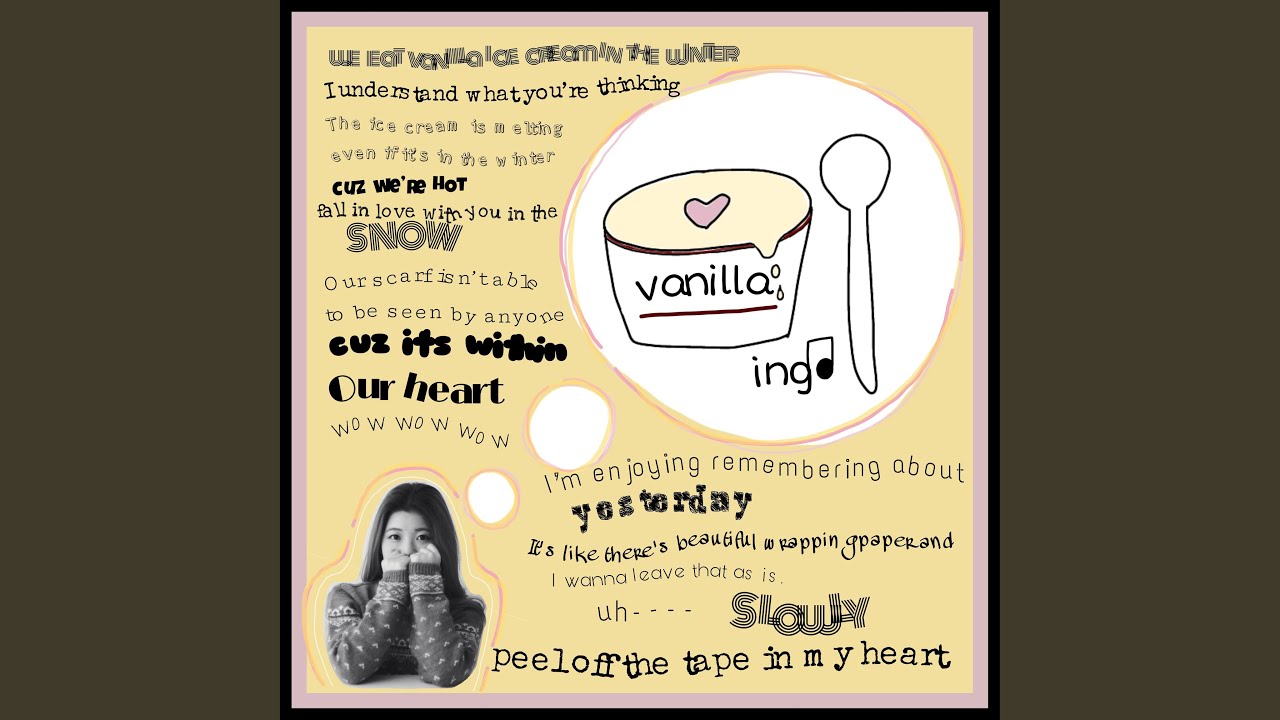 WE EAT VANILLA ICE CREAM IN THE WINTER
I understand what you're thinking
The ice cream is melting
even if it's in the winter
cuz we're HOT
fall in love with you in the
SNOW
Our scarf isn't able
to be seen by anyone
cuz its within
Our heart
wow wow wow
vanilla
ing
I'm enjoying remembering about
yesterday
It's like there's beautiful wrapping paper and
I wanna leave that as is.
uh----
SLOWLY
peel off the tape in my heart